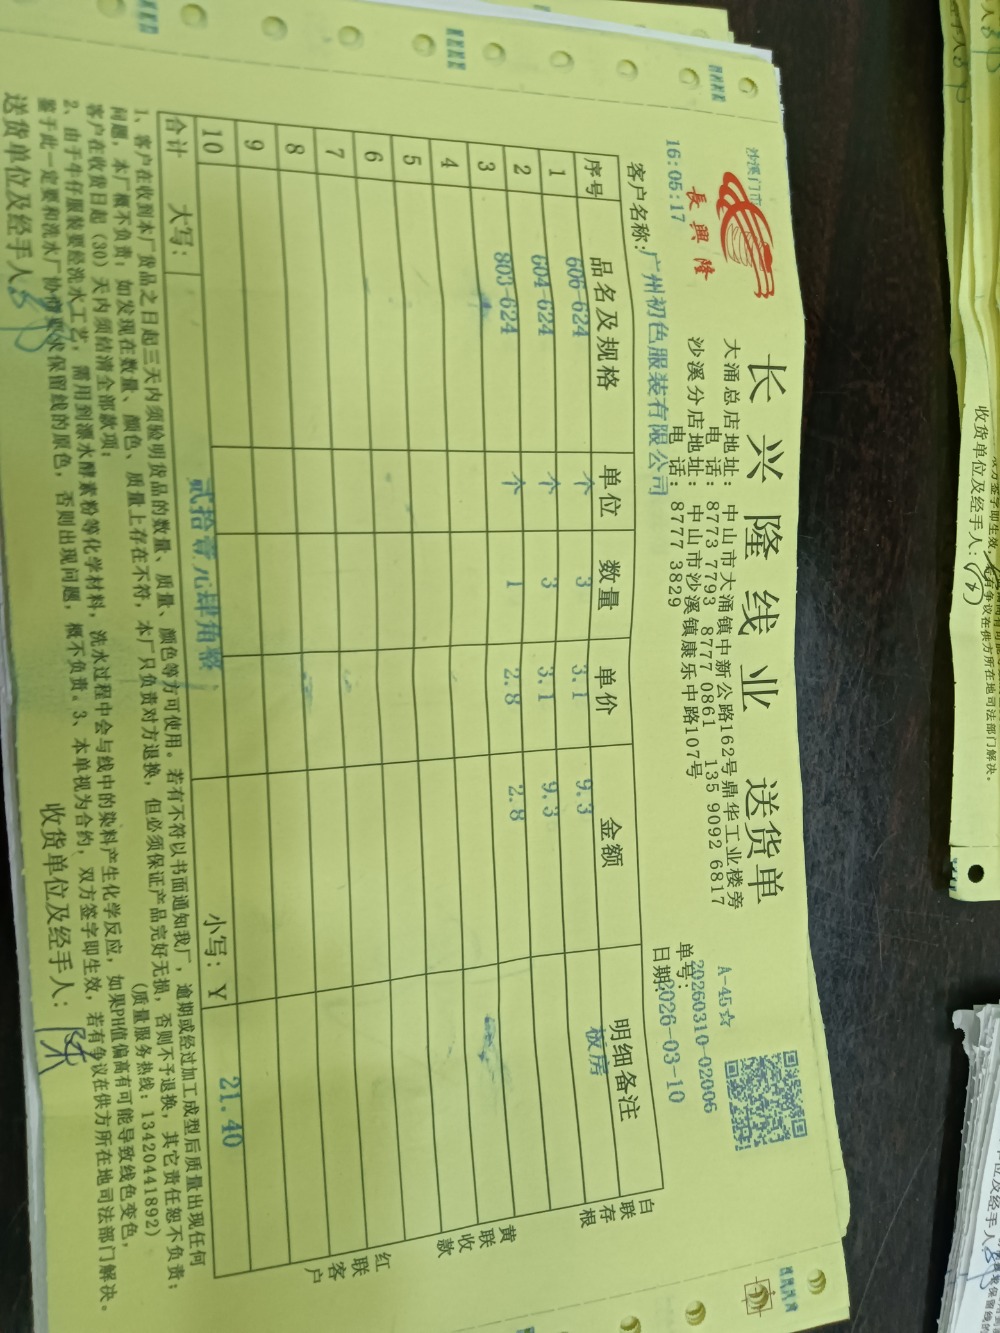 长兴隆线业 送货单
沙溪门市
長興隆
大涌总店地址：中山市大涌镇中新公路162号鼎华工业楼旁
电话：8773 7793 8777 0861 135 9092 6817
沙溪分店地址：中山市沙溪镇康乐中路107号
电话：8777 3829
A-45☆
16:05:17
单号：20260310-02006
客户名称：广州初色服装有限公司
日期：2026-03-10
序号 品名及规格 单位 数量 单价 金额 明细备注
1 606-624 个 3 3.1 9.3 板房
2 604-624 个 3 3.1 9.3
3 803-624 个 1 2.8 2.8
4
5
6
7
8
9
10
合计 大写：贰拾壹元肆角整 小写：Y 21.40
白联存根
黄联收款
红联客户
1、客户在收到本厂货品之日起三天内须验明货品的数量、质量、颜色等方可使用。若有不符以书面通知我厂，逾期或经过加工成型后质量出现任何
问题，本厂概不负责；如发现在数量、颜色、质量上存在不符，本厂只负责对方退换，但必须保证产品完好无损，否则不予退换，其它责任恕不负责；
客户在收货日起（30）天内须结清全部款项；（质量服务热线：13420441892）
2、由于牛仔服装要经洗水工艺，需用到漂水酵素粉等化学材料，洗水过程中会与线中的染料产生化学反应，如果PH值偏高有可能导致线色变色，
鉴于此一定要和洗水厂协商要求保留线的原色，否则出现问题，概不负责。3、本单视为合约，双方签字即生效，若有争议在供方所在地司法部门解决。
送货单位及经手人：
收货单位及经手人：陈
双方签字即生效，若有争议在供方所在地司法部门解决。
收货单位及经手人：